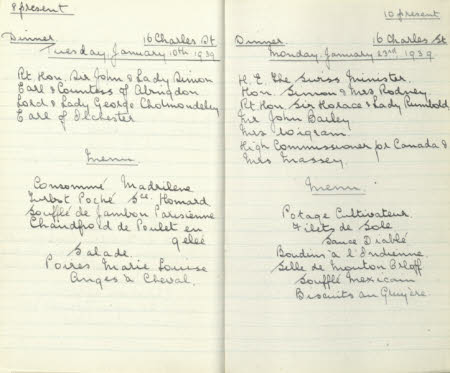 9 present
Dinner 16 Charles St
Tuesday, January 10th 1939
Rt Hon. Sir John & Lady Simon
Earl & Countess of Abingdon
Lord & Lady George Cholmondeley
Earl of Ilchester
Menu
Consommé Madrilene
Turbot Poché Sce. Homard
Soufflée de Jambon Parisienne
Chaudfroid de Poulet en
gelée
Salade
Poires Marie Louise
Anges à Cheval.
10 present
Dinner 16 Charles St
Monday, January 23rd 1939.
H.E. the Swiss Minister.
Hon. Simon & Mrs Rodney
Rt Hon Sir Horace & Lady Rumbold
Sir John Bailey
Mrs Wigram.
High Commissioner for Canada &
Mrs Massey.
Menu.
Potage Cultivateur.
Filets de Sole
Sauce Diablé
Boudin à l'Indienne
Selle de Mouton Orloff
Soufflé Mexicain
Biscuits au Gruyère